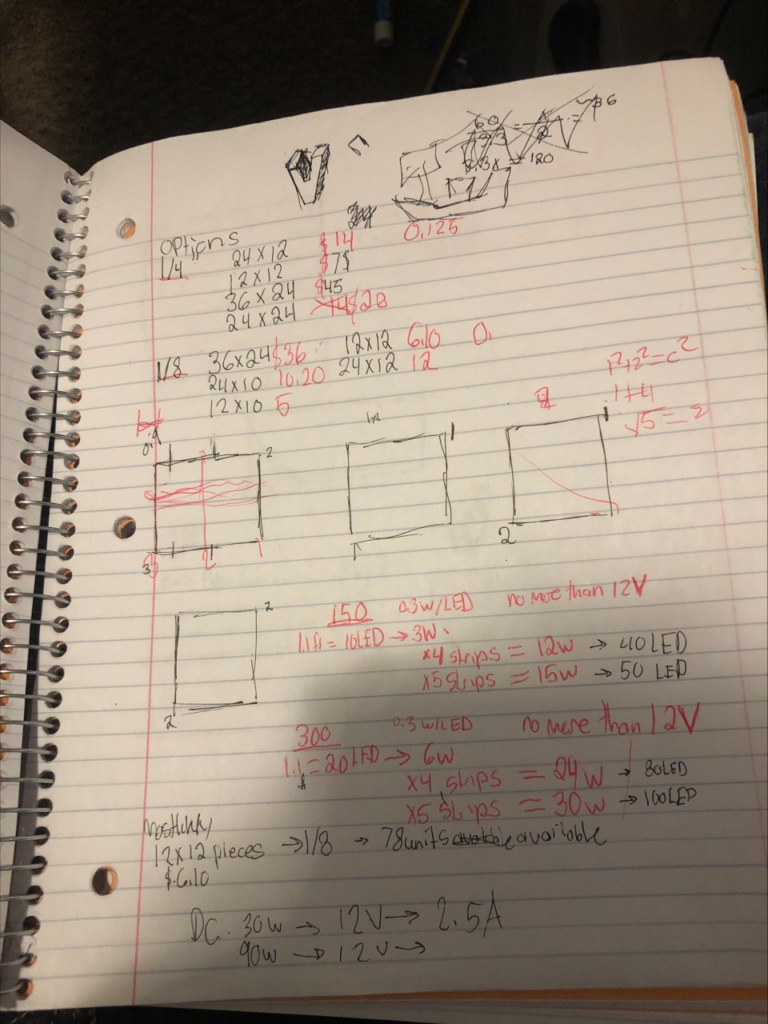 60
$6
= 120
options
1/4
24x12 $14 0.125
12x12 $7
36x24 $45
24x24 $28
1/8 36x24 $36 12x12 6.10 0.
24x10 10.20 24x12 12
12x10 5
1²+2²=c²
1+4
√5 = 2
2
1
1
3 2 1
2
2
2
150 0.3w/LED no more than 12V
1.1ft = 10LED → 3W.
x4 strips = 12w → 40LED
x5 strips = 15w → 50 LED
300 0.3w/LED no more than 12V
1.1 = 20LED → 6w
x4 strips = 24w → 80LED
x5 strips = 30w → 100LED
12x12 pieces → 1/8 → 78 units available
$6.10
DC. 30w → 12V → 2.5A
90w → 12v →